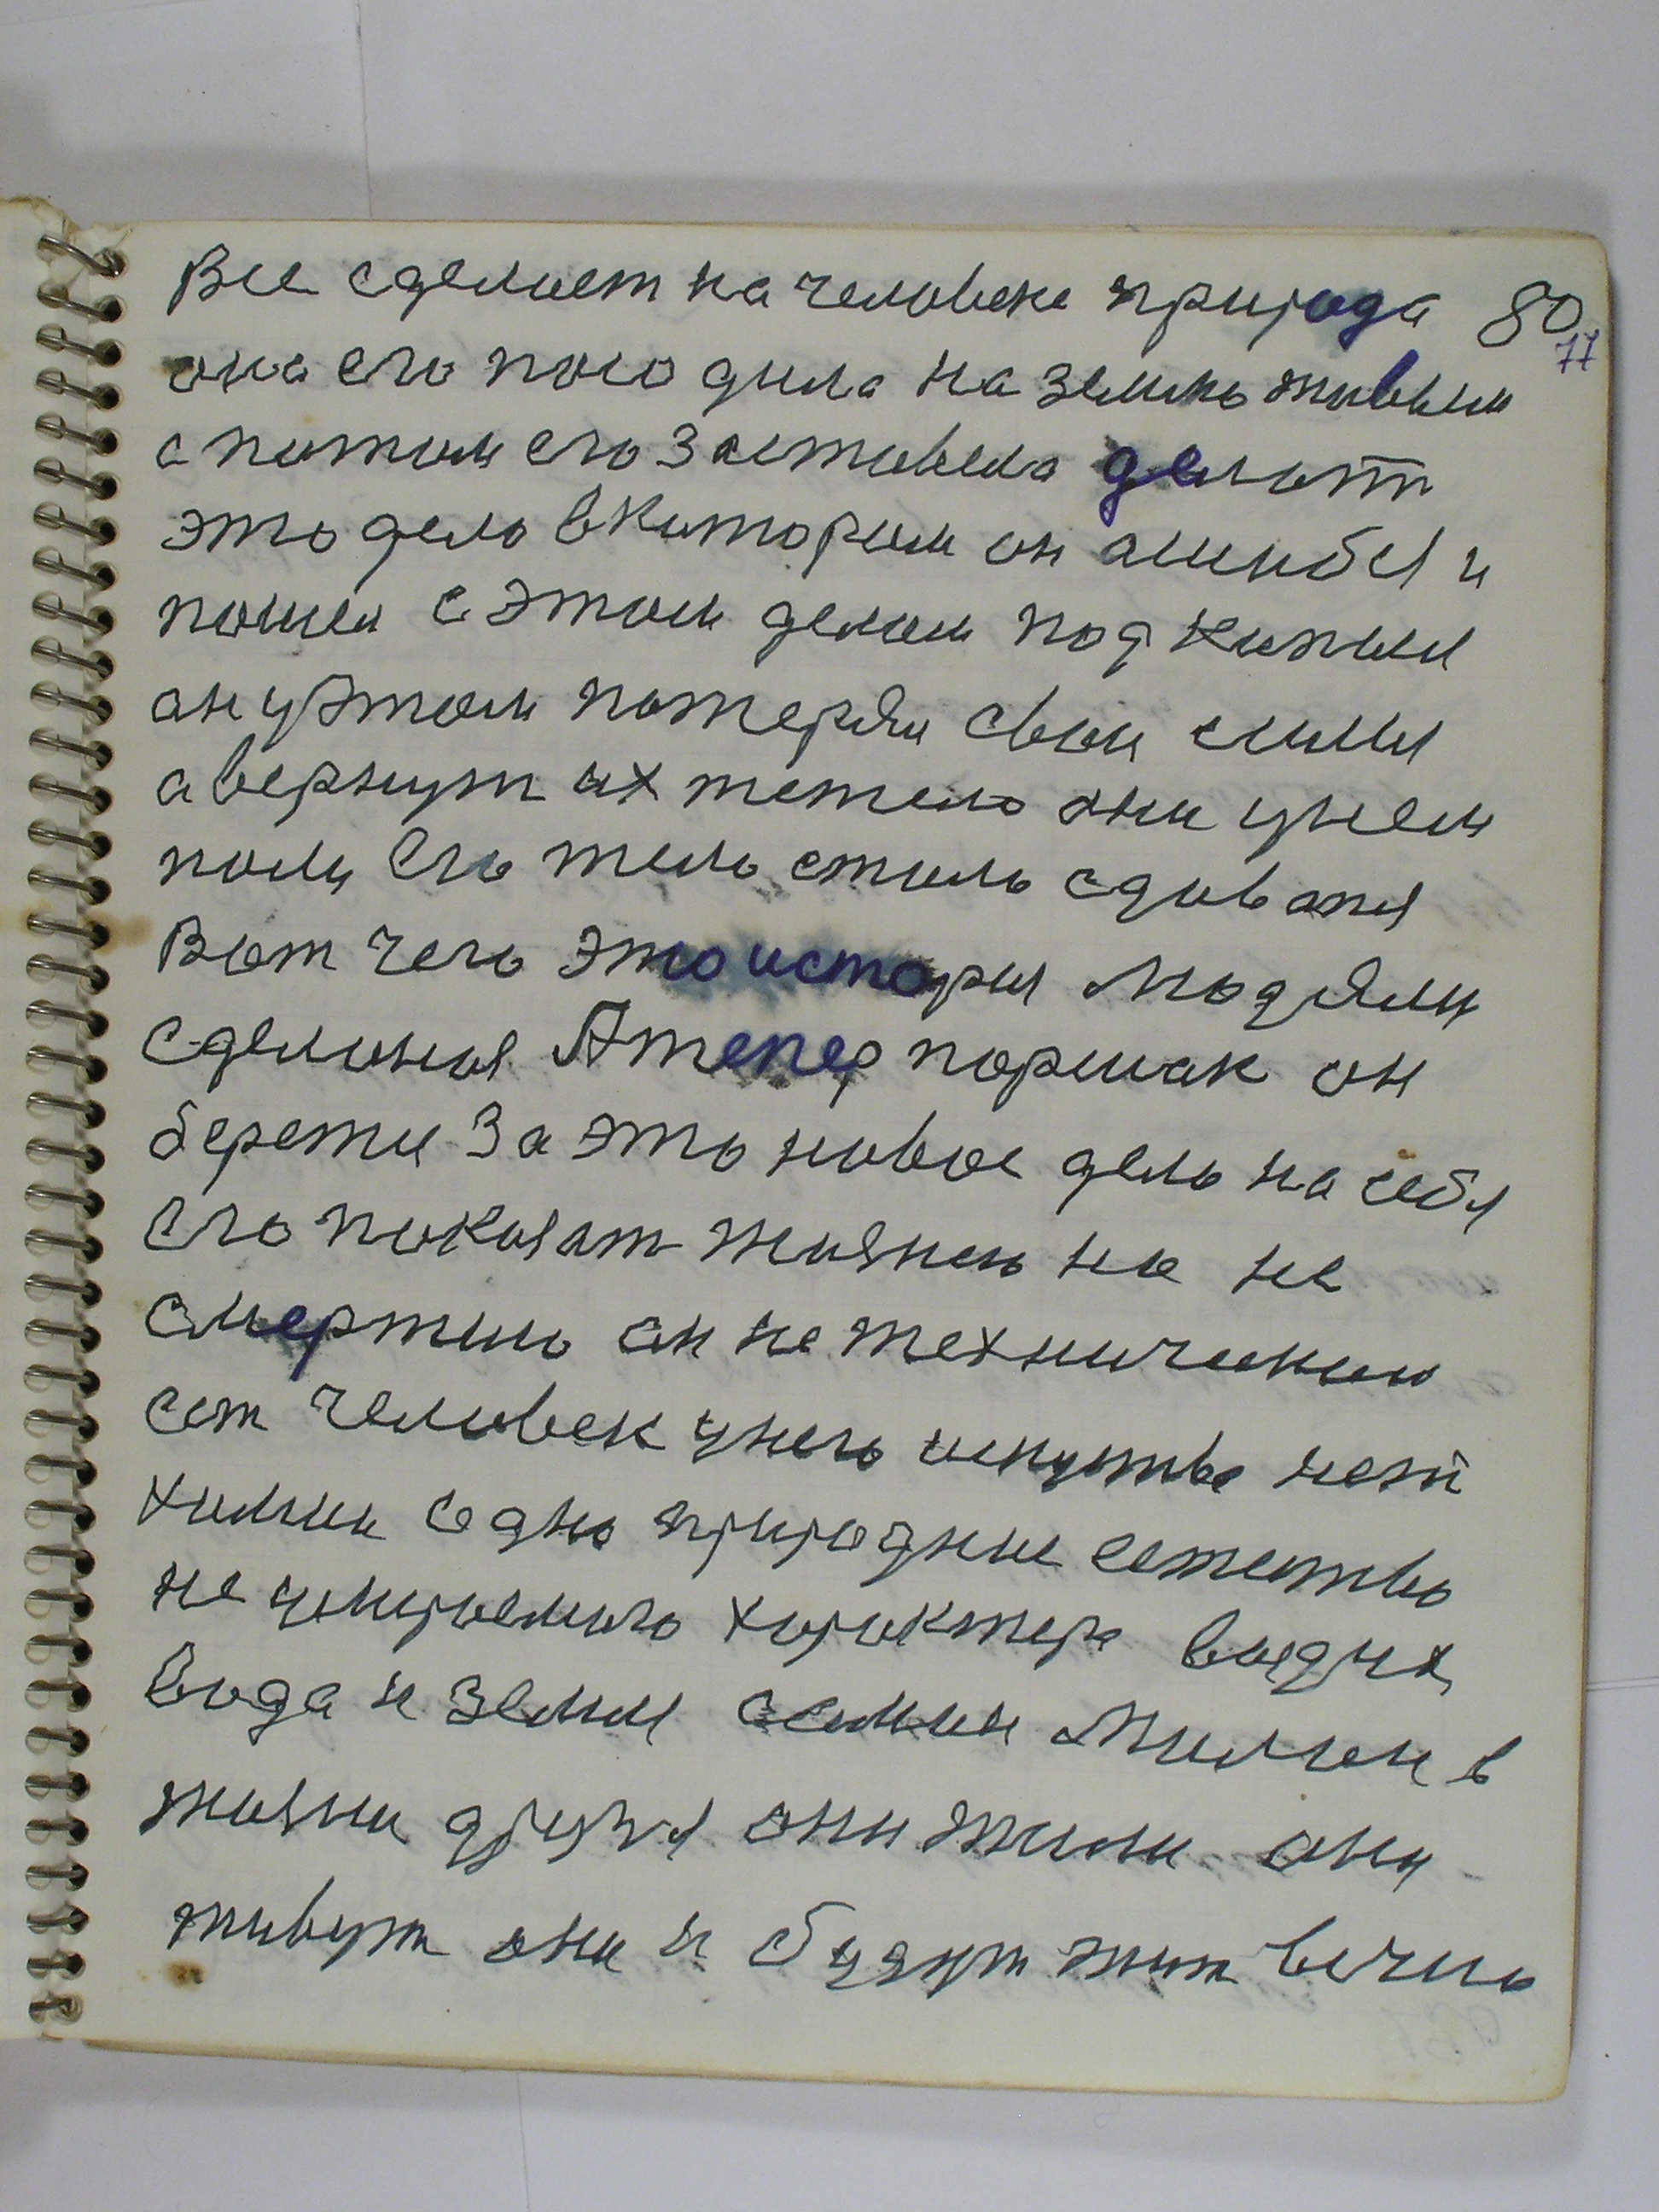 Все сделает на человеке природа 80
77
она его породила на землю живым
а потом его заставила делать
это дело в котором он ашибся и
пошел с этом делом под
он у этом потерял свои силы
а вернут их тяжело они у нем
его тело стало сдаватя
Вот чего это история людями
сделаная А тепер поршак он
беретя За это новое дело на себя
его жизнею но не
смертию он не технический
ест человек у него искуства нет
химии одно природние естество
характера воздух
вода и земля милыи в
жизни друзя они жили они
живут они и будут жит вечно